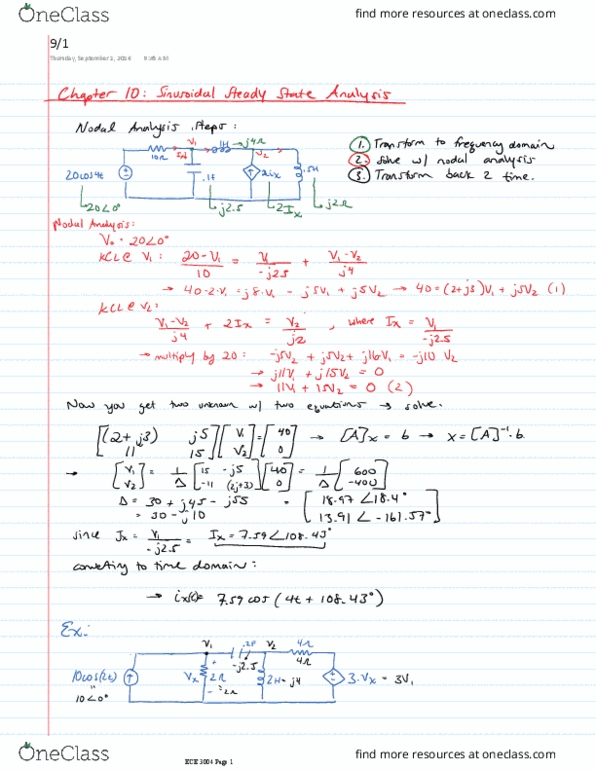 OneClass
find more resources at oneclass.com
9/1
Thursday, September 1, 2016
Chapter 10: Sinusoidal Steady State Analysis
Nodal Analysis steps:
1. Transform to frequency domain
2. solve w/ nodal analysis
3. Transform back 2 time.
V1 1H → j4Ω
10Ω V2
20cos4t .1F 2ix .5H
20∠0° -j2.5 2Ix j2Ω
Nodal Analysis:
V0 = 20∠0°
KCL@ V1: (20-V1)/10 = V1/(-j2.5) + (V1-V2)/j4
→ 40-2·V1 = j8·V1 - j5V1 + j5V2 → 40=(2+j3)V1 + j5V2 (1)
KCL@ V2:
(V1-V2)/j4 + 2Ix = V2/j2, where Ix = V1/(-j2.5)
→ multiply by 20: -j5V2 + j5V2 + j16V1 = -j10 V2
→ j11V1 + j15V2 = 0
→ 11V1 + 15V2 = 0 (2)
Now you get two unknown w/ two equations → solve.
[(2+j3) j5; 11 15][V1; V2] = [40; 0] → [A]x = b → x = [A]⁻¹·b
→ [V1; V2] = 1/Δ [15 -j5; -11 (2+j3)][40; 0] = 1/Δ [600; -400]
Δ = 30 + j45 - j55 = [18.97∠18.4°; 13.91∠-161.57°]
= 30 - j10
since Ix = V1/(-j2.5) = Ix = 7.59∠108.43°
converting to time domain:
→ ix(t)= 7.59 cos(4t + 108.43°)
Ex:
V1 .2F V2 4Ω
-j2.5 4Ω
10cos(2t) Vx 2Ω 2H= j4 3·Vx = 3V1
10∠0° 2Ω
OneClass
ECE 3004 Page 1
find more resources at oneclass.com